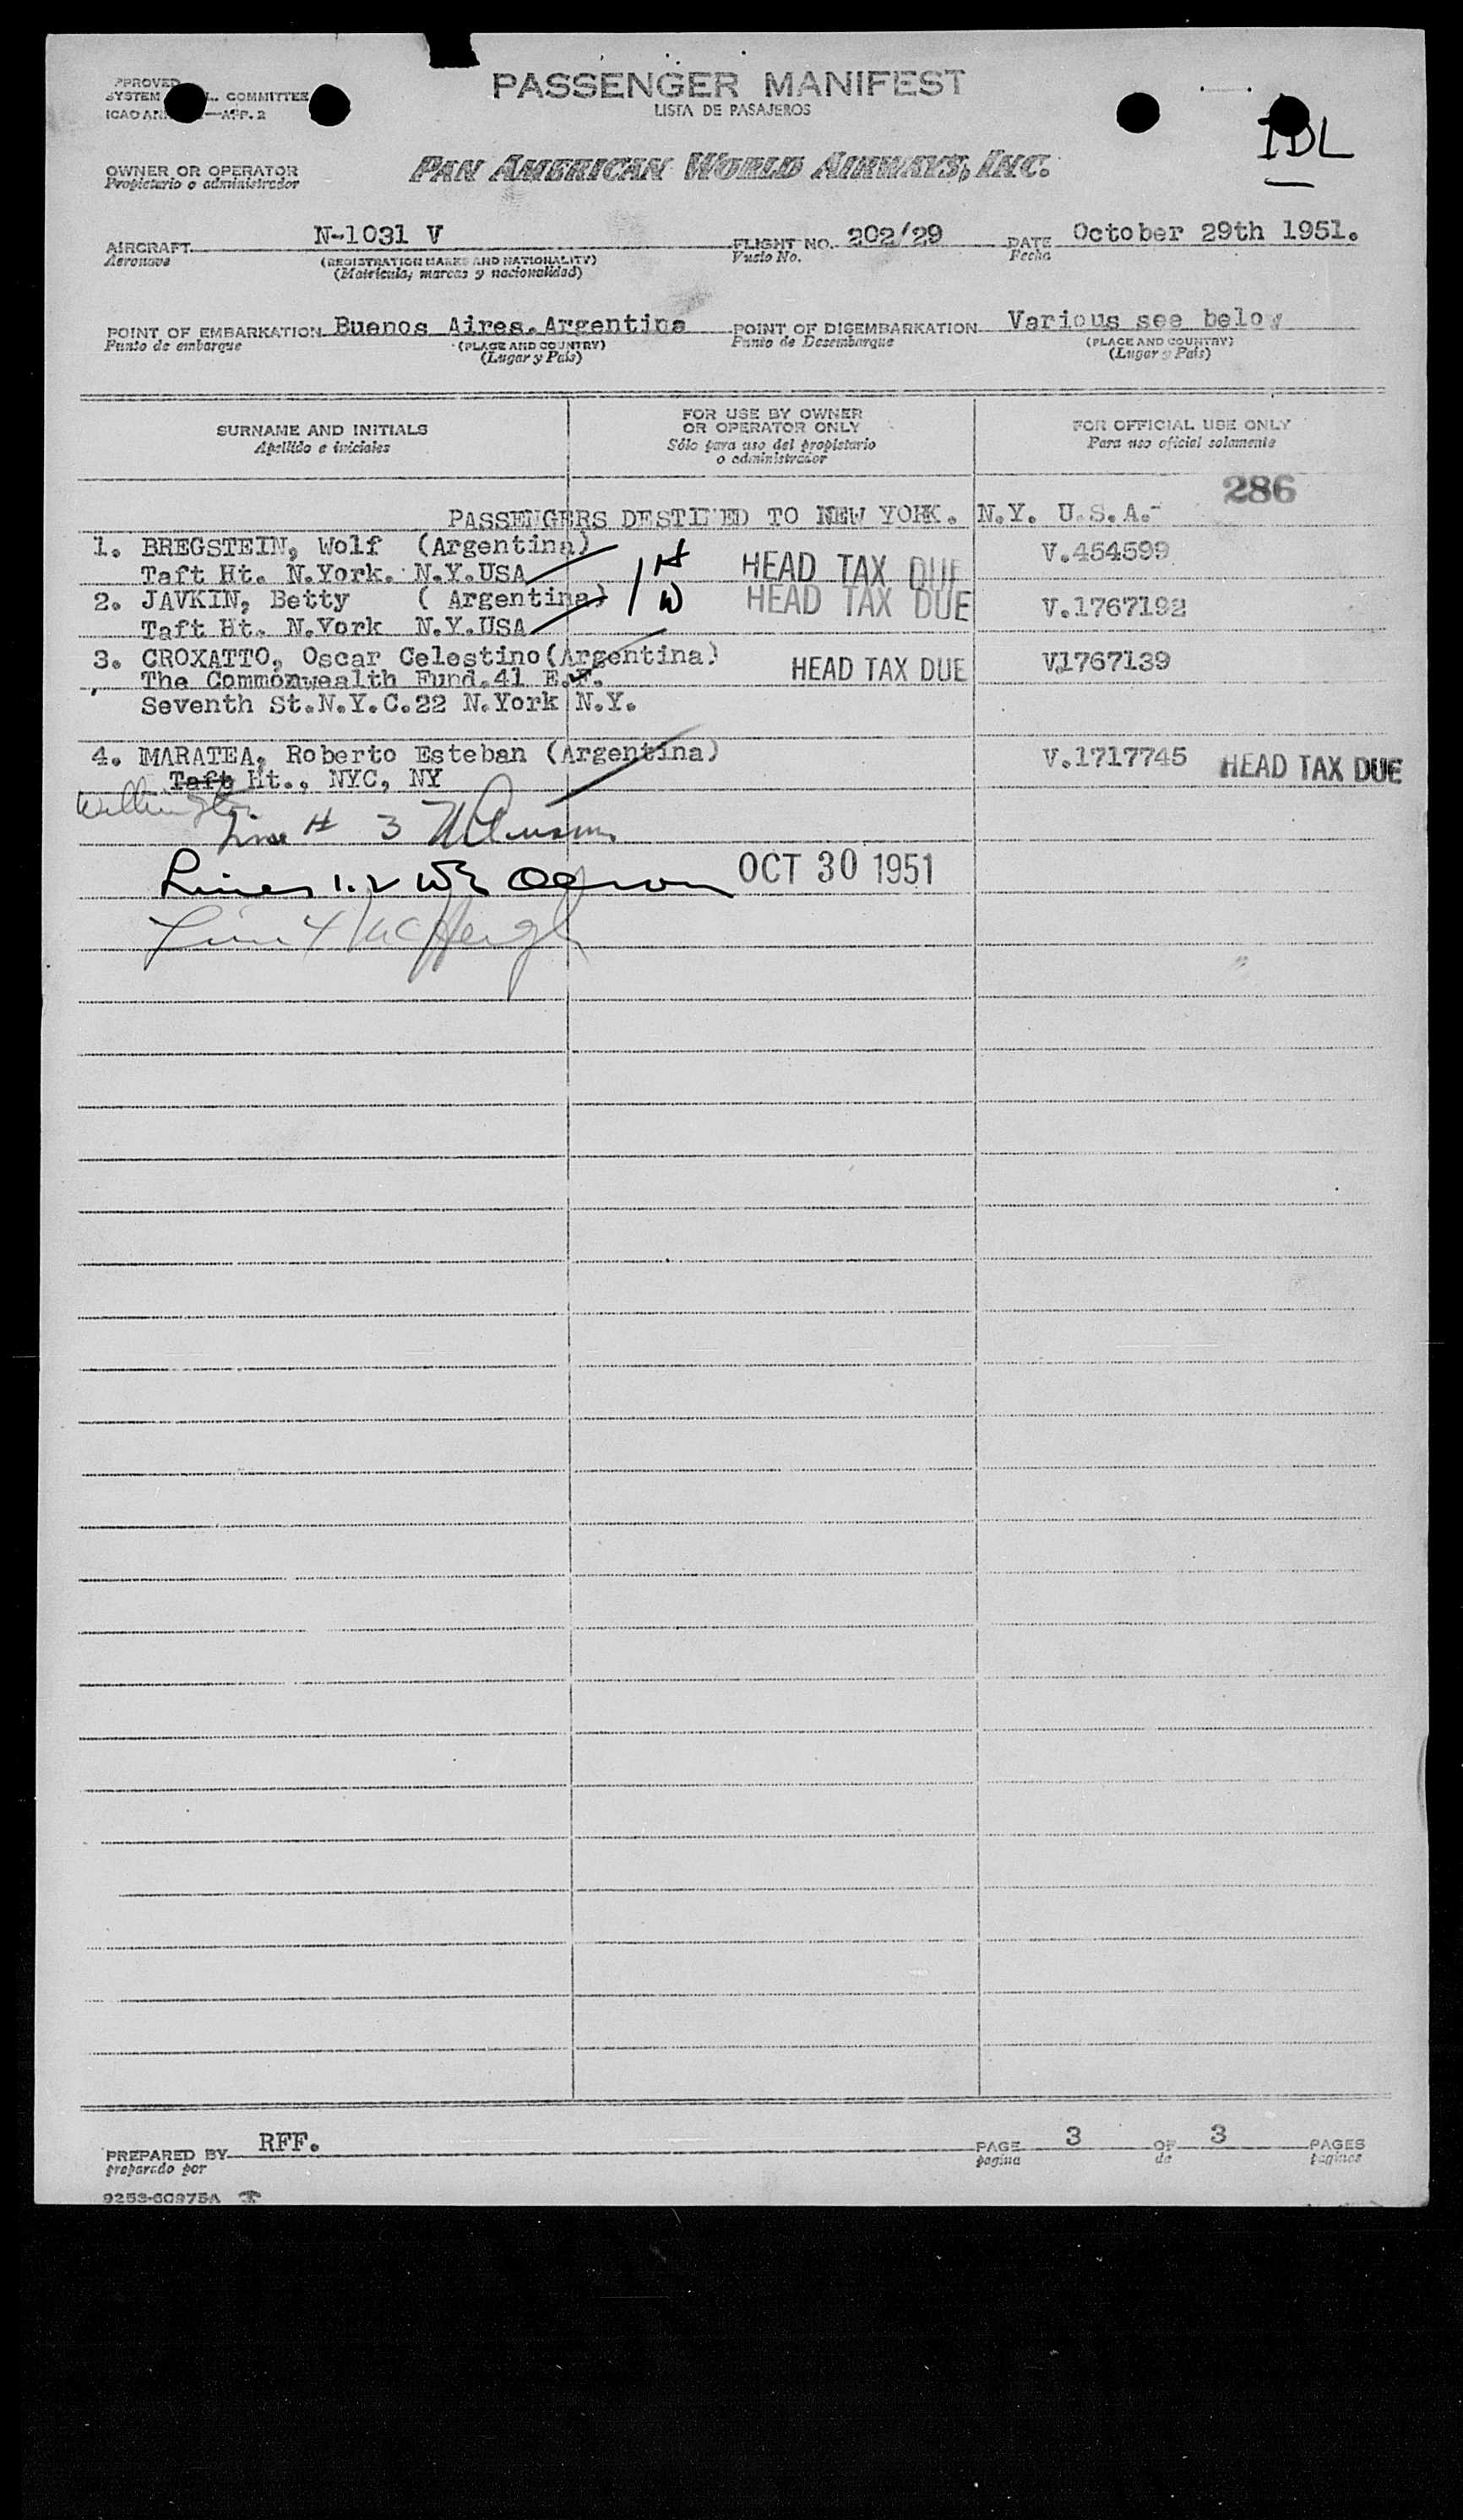 PASSENGER MANIFEST
LISTA DE PASAJEROS
APPROVED
SYSTEM COMMITTEE
ICAO APP. 2
IDL
OWNER OR OPERATOR
Propietario o administrador
PAN AMERICAN WORLD AIRWAYS, INC.
AIRCRAFT N-1031 V FLIGHT NO. 202/29 DATE October 29th 1951.
Aeronave (REGISTRATION MARKS AND NATIONALITY) Vuelo No. Fecha
(Matricula, marcas y nacionalidad)
POINT OF EMBARKATION Buenos Aires.Argentina POINT OF DISEMBARKATION Various see below
Punto de embarque (PLACE AND COUNTRY) Punto de Desembarque (PLACE AND COUNTRY)
(Lugar y País) (Lugar y País)
SURNAME AND INITIALS
Apellido e iniciales
FOR USE BY OWNER
OR OPERATOR ONLY
Sólo para uso del propietario
o administrador
FOR OFFICIAL USE ONLY
Para uso oficial solamente
286
PASSENGERS DESTINED TO NEW YORK. N.Y. U.S.A.-
1. BREGSTEIN, Wolf (Argentina) 1 H HEAD TAX DUE V.454599
Taft Ht. N.York. N.Y.USA
2. JAVKIN, Betty ( Argentina) 1 W HEAD TAX DUE V.1767192
Taft Ht. N.York N.Y.USA
3. CROXATTO, Oscar Celestino(Argentina) HEAD TAX DUE V1767139
The Commonwealth Fund.41 E.F.
Seventh St.N.Y.C.22 N.York N.Y.
4. MARATEA, Roberto Esteban (Argentina) V.1717745 HEAD TAX DUE
Taft Ht., NYC, NY
Wellington
Line # 3
Lines 1.2 OCT 30 1951
Line 4
PREPARED BY RFF. PAGE 3 OF 3 PAGES
preparado por pagina de paginas
9253-60975A